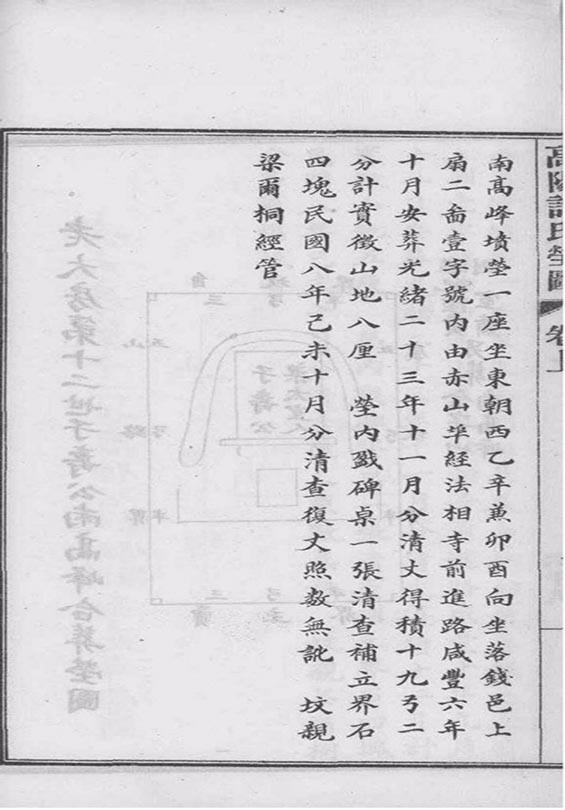 高陽許氏塋圖 卷上
南高峰墳塋一座坐東朝西乙辛蒸卯酉向坐落錢邑上
扇二畨壹字號内由赤山埠經法相寺前進路咸豐六年
十月安葬光緒二十三年十一月分清丈得積十九弓二
分計實徵山地八厘 塋内戤碑桌一張清查補立界石
四塊民國八年己未十月分清查復丈照数無訛 坟親
梁爾桐經管
老大房第十二世子壽公南高峰合葬塋圖